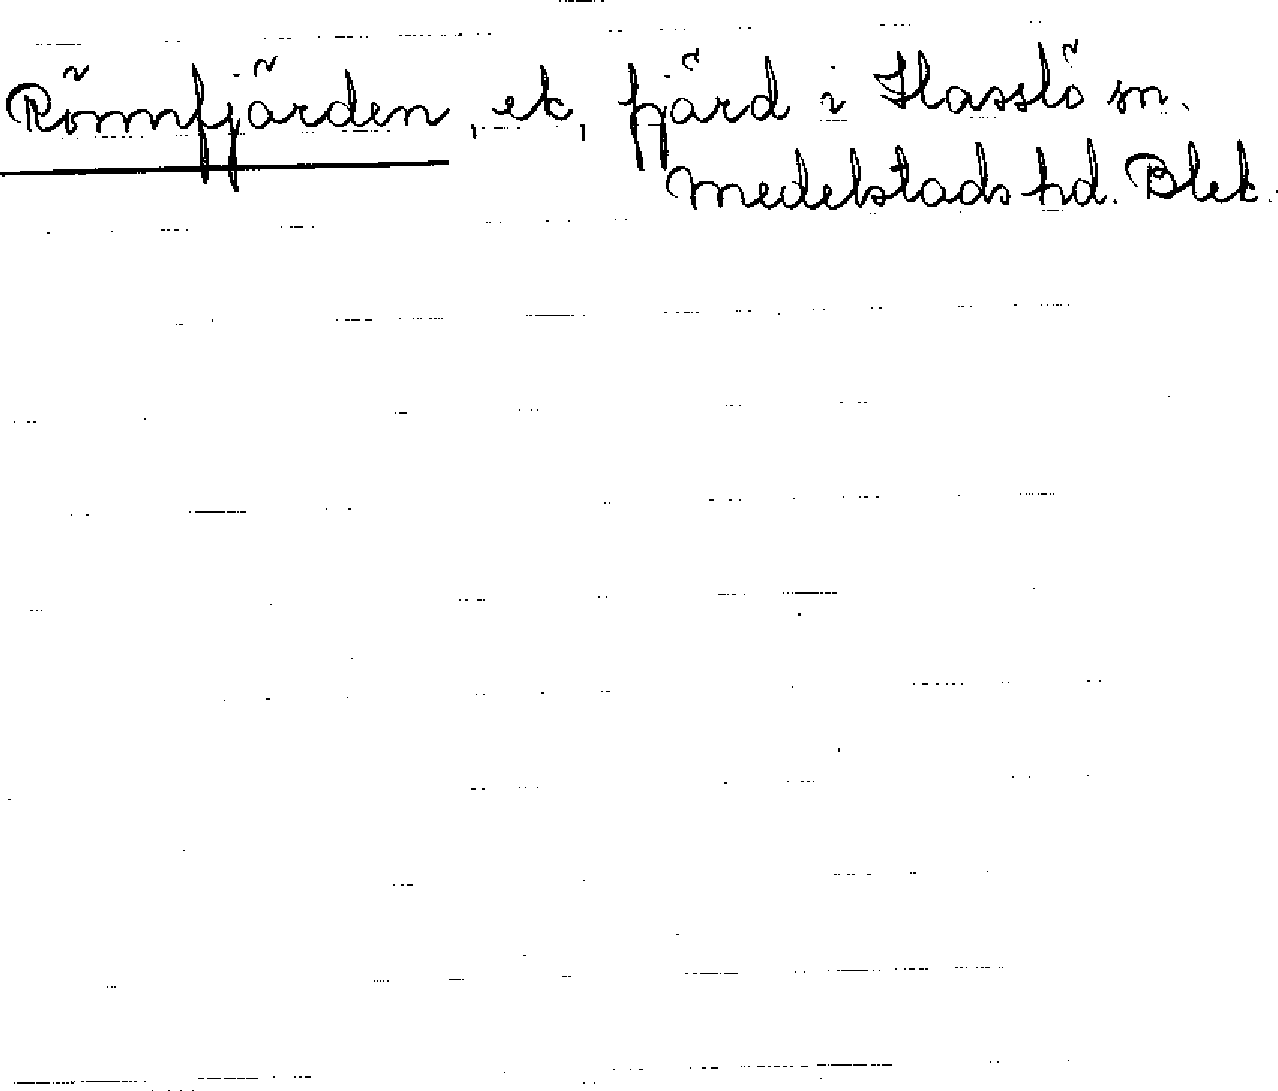 Römmfjärden, ek, fjärd i Hasslö sn.
Medelstads hd. Blek.